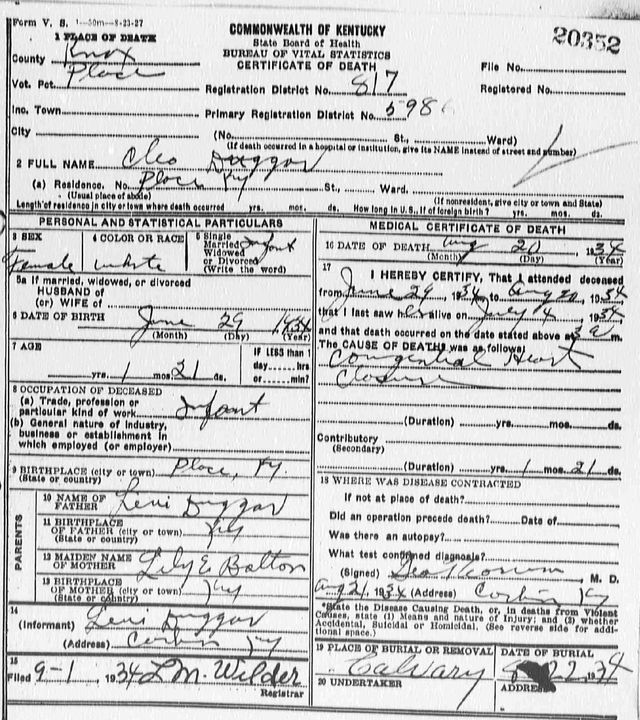 Form V. S. 1-50m-8-23-27
COMMONWEALTH OF KENTUCKY
State Board of Health
BUREAU OF VITAL STATISTICS
CERTIFICATE OF DEATH
20352
1 PLACE OF DEATH
County Knox
Vot. Pct. Place
Inc. Town
City
Registration District No. 817
Primary Registration District No. 598
File No.
Registered No.
(No. St., Ward)
(If death occurred in a hospital or institution, give its NAME instead of street and number)
2 FULL NAME Cleo Duggar
(a) Residence. No. Place Ky St., Ward.
(Usual place of abode) (If nonresident, give city or town and State)
Length of residence in city or town where death occurred yrs. mos. ds. How long in U. S., if of foreign birth? yrs. mos. ds.
PERSONAL AND STATISTICAL PARTICULARS
3 SEX Female
4 COLOR OR RACE white
5 Single Married Widowed or Divorced (Write the word) Infant
5a If married, widowed, or divorced
HUSBAND of
(or) WIFE of
6 DATE OF BIRTH June 29 1934
(Month) (Day) (Year)
7 AGE yrs. 1 mos. 21 ds.
IF LESS than 1 day hrs or min?
8 OCCUPATION OF DECEASED
(a) Trade, profession or particular kind of work Infant
(b) General nature of industry, business or establishment in which employed (or employer)
9 BIRTHPLACE (city or town) Place, Ky.
(State or country)
PARENTS
10 NAME OF FATHER Levi Duggar
11 BIRTHPLACE OF FATHER (city or town) Ky
(State or country)
12 MAIDEN NAME OF MOTHER Lily E Bolton
13 BIRTHPLACE OF MOTHER (city or town) Ky
(State or country)
14
(Informant) Levi Duggar
(Address) Corbin Ky
15
Filed 9-1 1934 L M. Wilder
Registrar
MEDICAL CERTIFICATE OF DEATH
16 DATE OF DEATH Aug 20 1934
(Month) (Day) (Year)
17
I HEREBY CERTIFY, That I attended deceased
from June 29 1934 to Aug 20, 1934
that I last saw her alive on July 4 1934
and that death occurred on the date stated above at 3 a m.
The CAUSE OF DEATH* was as follows:
Congenital Heart
Closure
(Duration) yrs. mos. ds.
Contributory
(Secondary)
(Duration) yrs. 1 mos. 21 ds.
18 WHERE WAS DISEASE CONTRACTED
If not at place of death?
Did an operation precede death? Date of
Was there an autopsy?
What test confirmed diagnosis?
(Signed) M. D.
Aug 21, 1934 (Address) Corbin Ky
*State the Disease Causing Death, or, in deaths from Violent
Causes, state (1) Means and nature of Injury; and (2) whether
Accidental, Suicidal or Homicidal. (See reverse side for addi-
tional space.)
19 PLACE OF BURIAL OR REMOVAL
Calvary
DATE OF BURIAL
8 22 1934
20 UNDERTAKER
ADDRESS